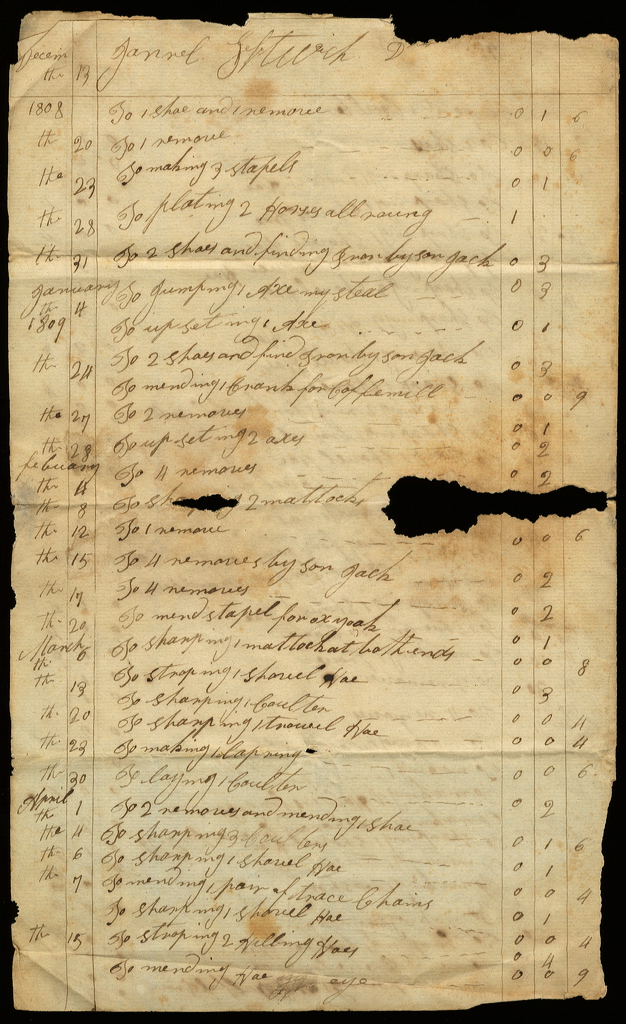 Decem
th 13 Jannel Leftwich D
1808 To 1 shoe and 1 remove 0 1 6
th 20 To 1 remove 0 0 6
the 23 To making 3 stapels 0 1
th 28 To plating 2 Horses all roung 1
th 31 To 2 shoes and finding Iron by son Jack 0 3
January
th 4 To Jumping 1 Axe my steal 0 3
1809 To up set ing 1 Axe 0 1
th 24 To 2 shoes and find Iron by son Jack 0 3
To mending 1 Crank for Coffemill 0 0 9
the 27 To 2 removes 0 1
th 28 To up seting 2 axes 0 2
febuary
th 4 To 4 removes 0 2
th 8 To sharping 2 mattocks
th 12 To 1 remove 0 0 6
th 15 To 4 removes by son Jack 0 2
th 17 To 4 removes 0 2
th 20 To mend stapel for ox yoak 0 1
March
th 6 To sharping 1 mattock at both ends 0 0 8
th 13 To stroping 1 shovel Hoe 0 3
To sharping 1 Coulter 0 0 4
th 20 To sharping 1 trowel Hoe 0 0 4
th 23 To making 1 lapring 0 0 6
th 30 To laying 1 Coulter 0 2
April
th 1 To 2 removes and mending 1 shoe 0 1 6
the 4 To sharping 3 Coulters 0 1
th 6 To sharping 1 shovel Hoe 0 0 4
th 7 To mending 1 pair of trace Chains 0 1
To sharping 1 shovel Hoe 0 0 4
th 15 To stroping 2 Hilling Hoes 0 4
To mending Hoe eye 0 0 9